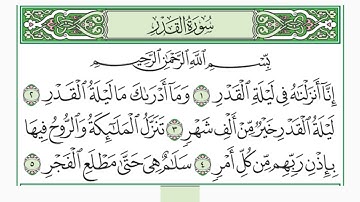 سُورَةُ الْقَدْرِ
بِسْمِ اللَّهِ الرَّحْمَٰنِ الرَّحِيمِ
إِنَّا أَنزَلْنَاهُ فِي لَيْلَةِ الْقَدْرِ ١ وَمَا أَدْرَىٰكَ مَا لَيْلَةُ الْقَدْرِ ٢
لَيْلَةُ الْقَدْرِ خَيْرٌ مِّنْ أَلْفِ شَهْرٍ ٣ تَنَزَّلُ الْمَلَٰٓئِكَةُ وَالرُّوحُ فِيهَا
بِإِذْنِ رَبِّهِم مِّن كُلِّ أَمْرٍ ٤ سَلَٰمٌ هِيَ حَتَّىٰ مَطْلَعِ الْفَجْرِ ٥